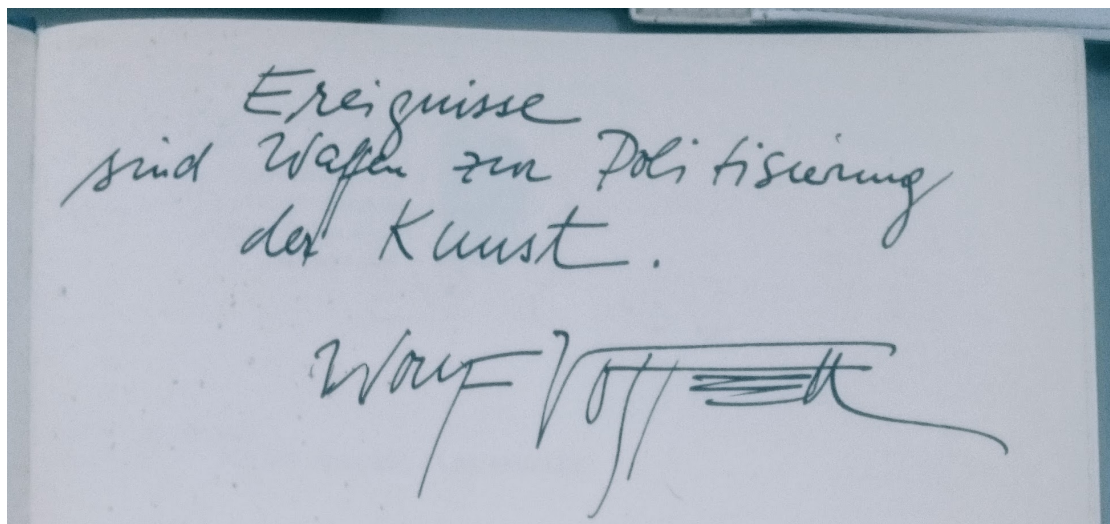 Ereignisse
sind Waffen zur Politisierung
der Kunst.
Wolf Vostell